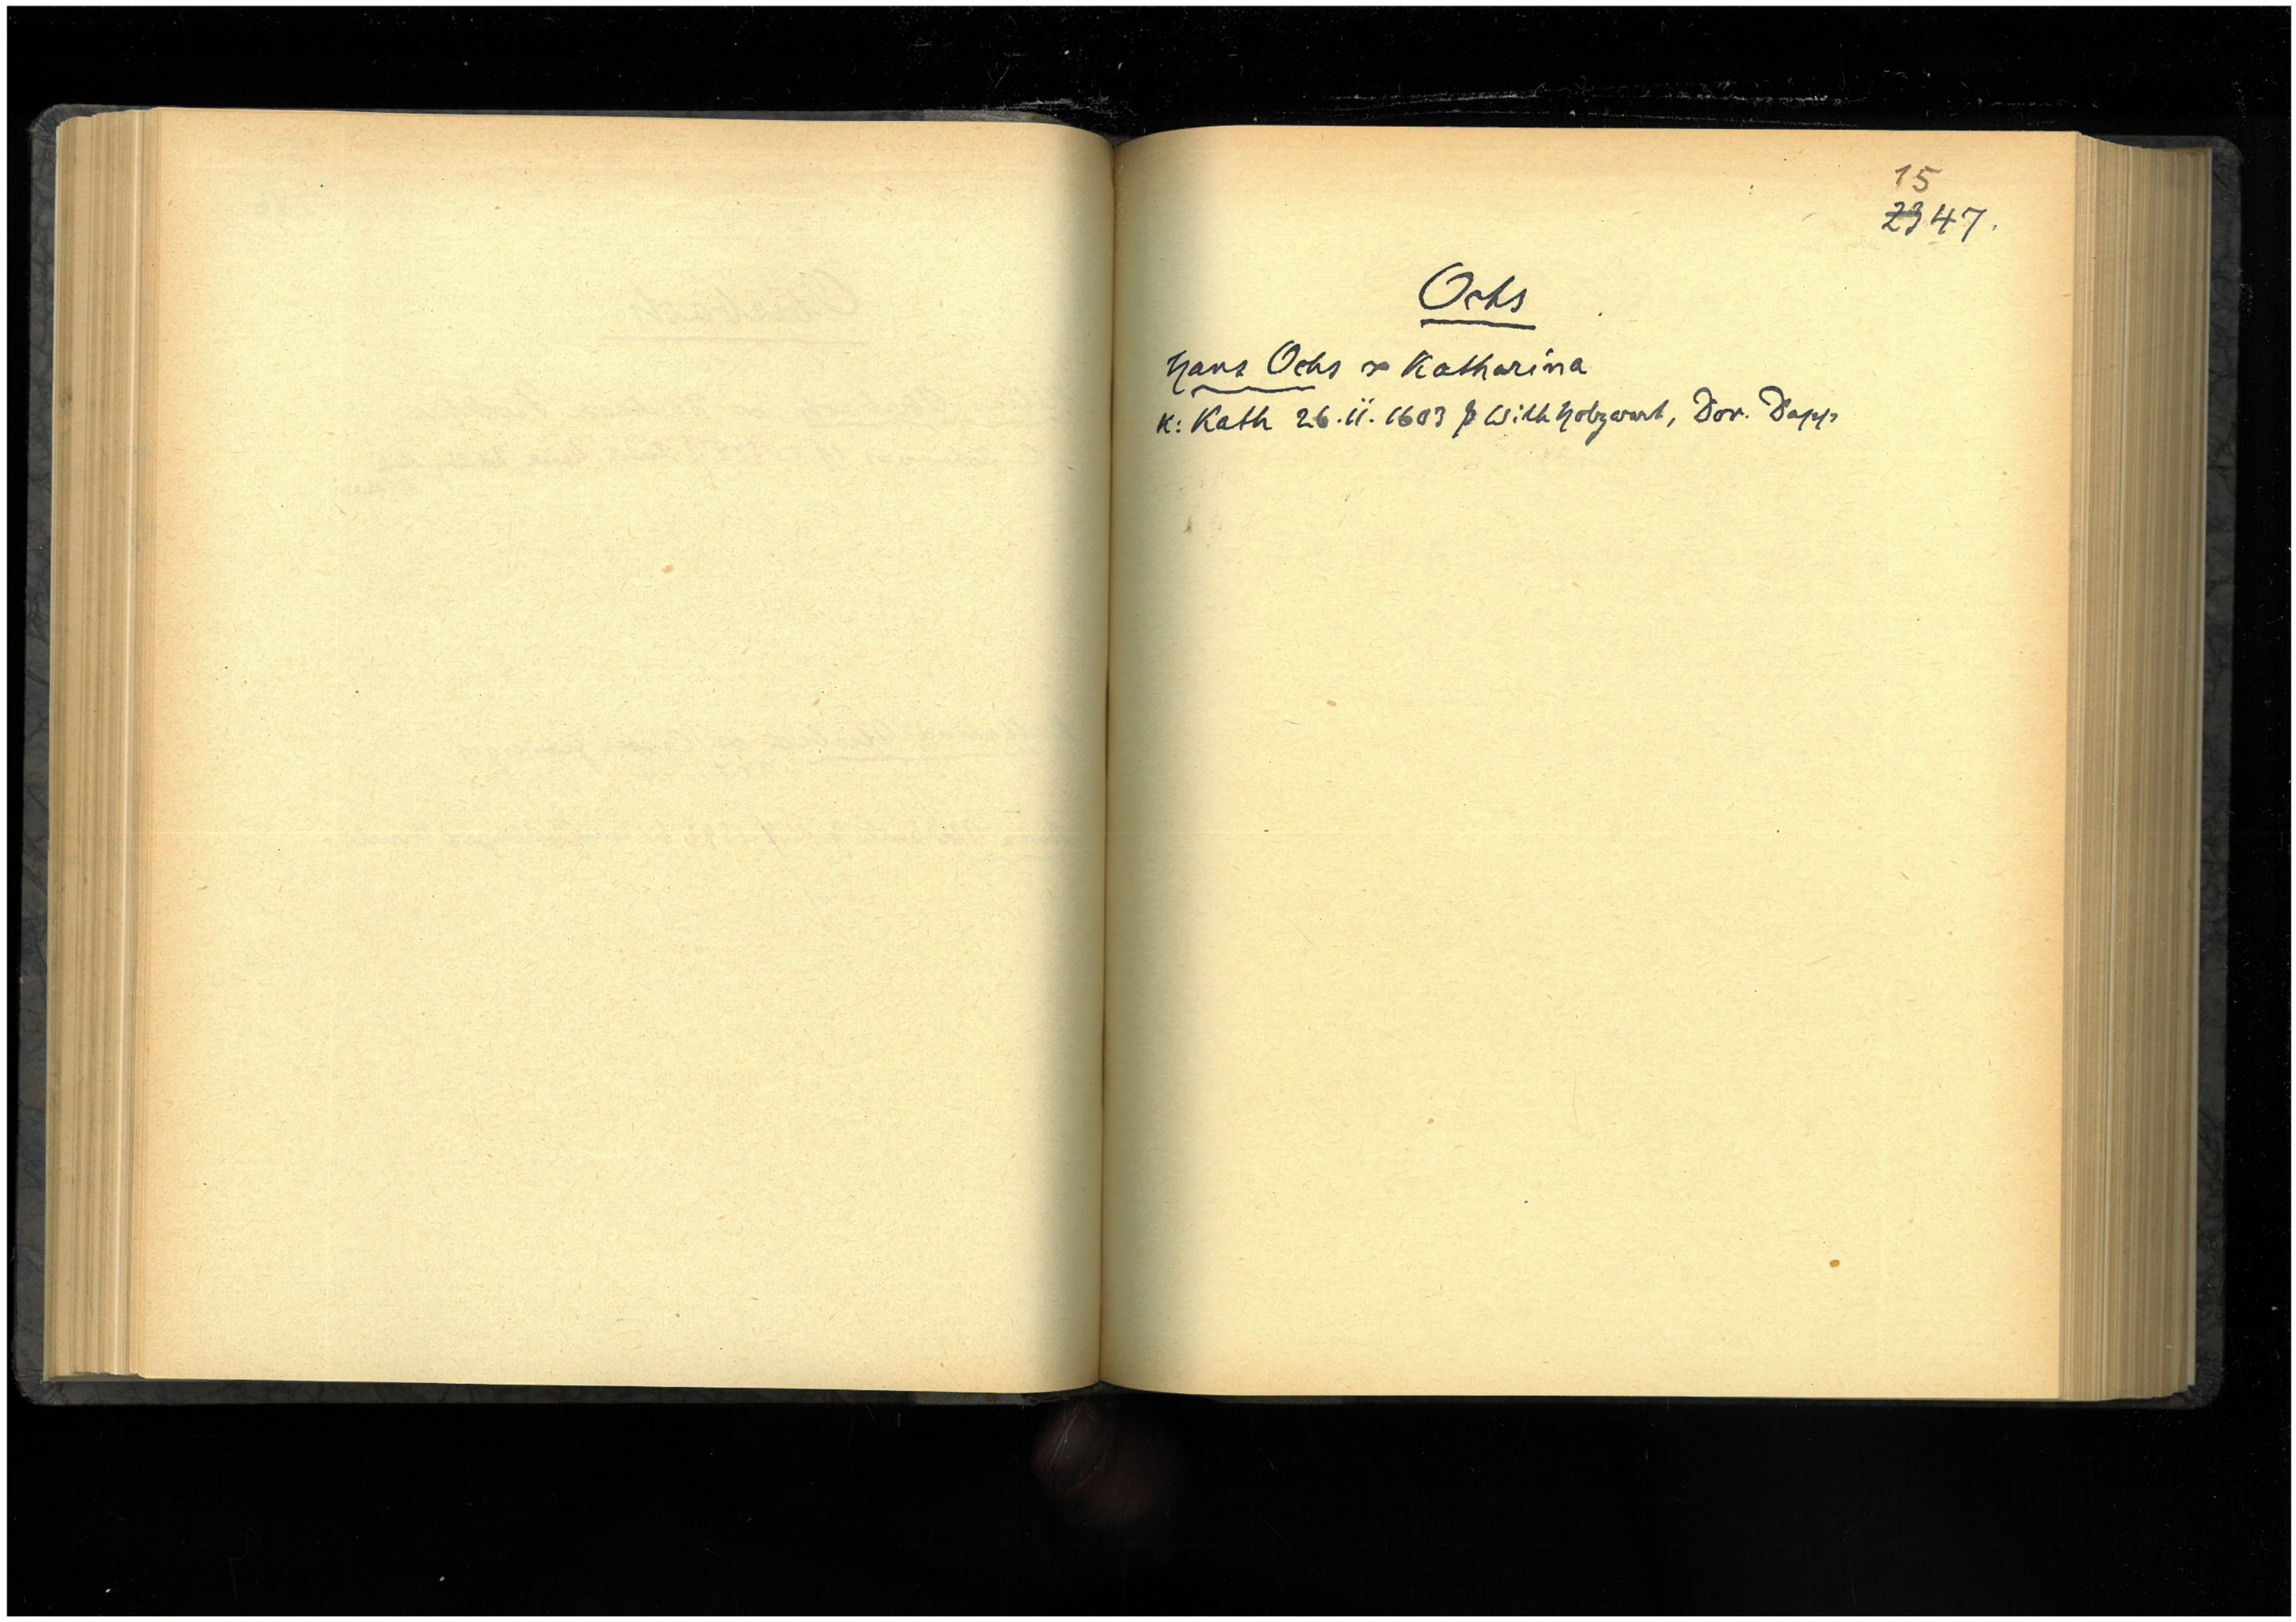 15
2347.
Ochs
Hans Ochs ∞ Katharina
K: Kath 26.II.1603 p Wilh Holzwart, Dor. Dapp